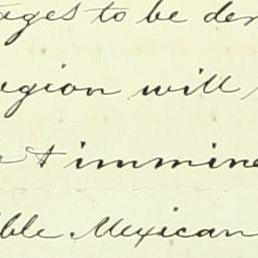 ages to be der
egion will
& immine
ible Mexican